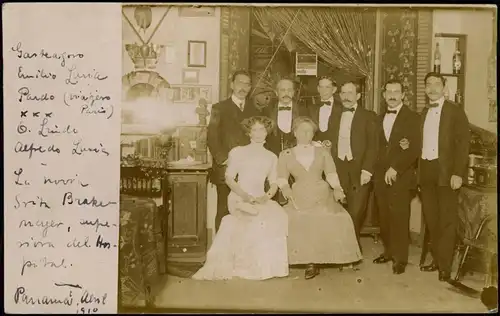 Gasteazoro
Emilio Lassa
Pardo (viajero
x x x Paris)
O. Lindo
Alfredo
La novia
Srita Brake-
meyer, supe-
riora del Hos-
pital.
Panamá, Abril
1910